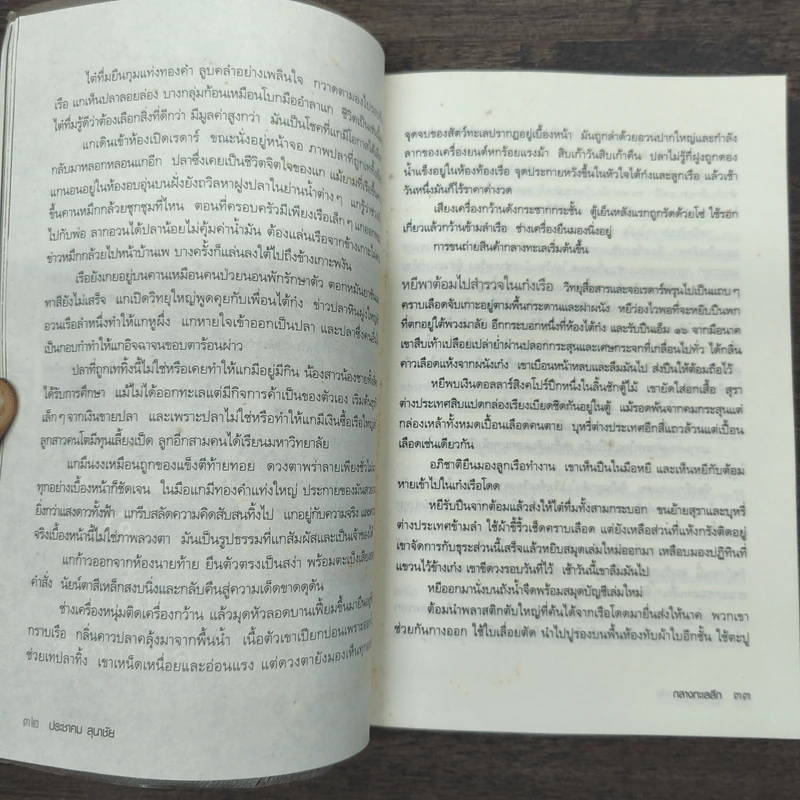 ไต๋ที่มยืนกุมแท่งทองคำ ลูบคลำอย่างเพลินใจ กวาดตามองไป
เรือ แกเห็นปลาลอยล่อง บางกลุ่มก้อนเหมือนโบกมืออำลาแก ชีวิตเป็น
ไต๋ที่มรู้ดีว่าต้องเลือกสิ่งที่ดีกว่า มีมูลค่าสูงกว่า มันเป็นโชคที่แกมีโอกาสได้
แกเดินเข้าห้องเปิดเรดาร์ ขณะนั่งอยู่หน้าจอ ภาพปลาที่ถูก
กลับมาหลอกหลอนแกอีก ปลาซึ่งเคยเป็นชีวิตจิตใจของแก แม้ยามที่เรือ
แกนอนอยู่ในห้องอบอุ่นบนฝั่งยังถวิลหาฝูงปลาในย่านน้ำต่างๆ แกรู้ว่า
ขึ้นคานหมึกกล้วยชุกชุมที่ไหน ตอนที่ครอบครัวมีเพียงเรือเล็กๆ แก
ไปกับพ่อ ลากอวนได้ปลาน้อยไม่คุ้มค่าน้ำมัน ต้องแล่นเรือจากข้างเกาะ
ข่าวหมึกกล้วยไปหน้าบ้านเพ บางครั้งก็แล่นลงใต้ไปถึงข้างเกาะพงัน
เรือยังเกยอยู่บนคานเหมือนคนป่วยนอนพักรักษาตัว ตอกหมัน
ทาสียังไม่เสร็จ แกเปิดวิทยุใหญ่พูดคุยกับเพื่อนไต้ก๋ง ข่าวปลาหิน
อวนเรือลำหนึ่งทำให้แกหูผึ่ง แกหายใจเข้าออกเป็นปลา และปลาซึ่งคน
เป็นกอบกำทำให้แกอิจฉาจนขอบตาร้อนผ่าว
ปลาที่ถูกเททิ้งนี้ไม่ใช่หรือเคยทำให้แกมีอยู่มีกิน น้องสาวน้องชาย
ได้รับการศึกษา แม้ไม่ได้ออกทะเลแต่มีกิจการค้าเป็นของตัวเอง เริ่มต้น
เล็กๆ จากเงินขายปลา และเพราะปลาไม่ใช่หรือทำให้แกมีเงินซื้อเรือใหญ่
ลูกสาวคนโตมีทุนเลี้ยงเป็ด ลูกอีกสามคนได้เรียนมหาวิทยาลัย
แกมึนงงเหมือนถูกของแข็งตีท้ายทอย ดวงตาพร่าลายเพียงชั่ว
ทุกอย่างเบื้องหน้าก็ชัดเจน ในมือแกมีทองคำแท่งใหญ่ ประกายของมัน
ยิ่งกว่าแสงดาวทั้งฟ้า แกรีบสลัดความคิดสับสนทิ้งไป แกอยู่กับความจริง และ
จริงเบื้องหน้านี้ไม่ใช่ภาพลวงตา มันเป็นรูปธรรมที่แกสัมผัสและเป็นเจ้าของได้
แกก้าวออกจากห้องนายท้าย ยืนตัวตรงเป็นสง่า พร้อมตะเบ็งเสียง
คำสั่ง นัยน์ตาสีเหล็กสงบนิ่งและกลับคืนสู่ความเด็ดขาดดุดัน
ช่างเครื่องหนุ่มติดเครื่องกว้าน แล้วมุดหัวลอดบานเฟี้ยมขึ้นมายืน
กราบเรือ กลิ่นคาวปลาคลุ้งมาจากพื้นน้ำ เนื้อตัวเขาเปียกปอนเพราะ
ช่วยเทปลาทิ้ง เขาเหน็ดเหนื่อยและอ่อนแรง แต่ดวงตายังมองเห็น
๓๒ ประชาคม ลุนาชัย
จุดจบของสัตว์ทะเลปรากฏอยู่เบื้องหน้า มันถูกล่าด้วยอวนปากใหญ่และกำลัง
ลากของเครื่องยนต์หกร้อยแรงม้า สิบเก้าวันสิบเก้าคืน ปลาไม่รู้กี่ฝูงถูกดอง
น้ำแข็งอยู่ในห้องท้องเรือ จุดประกายหวังขึ้นในหัวใจไต้ก๋งและลูกเรือ แล้วเช้า
วันหนึ่งมันก็ไร้ราคาค่างวด
เสียงเครื่องกว้านดังกระชากกระชั้น ตู้เย็นหลังแรกถูกรัดด้วยโซ่ ใช้รอก
เกี่ยวแล้วกว้านข้ามลำเรือ ช่างเครื่องยืนมองนิ่งอยู่
การขนถ่ายสินค้ากลางทะเลเริ่มต้นขึ้น
หยีพาต้อมไปสำรวจในเก๋งเรือ วิทยุสื่อสารและจอเรดาร์พรุนไปเป็นแถบๆ
คราบเลือดจับเกาะอยู่ตามพื้นกระดานและฝาผนัง หยีว่องไวพอที่จะหยิบปืนพก
ที่ตกอยู่ใต้พวงมาลัย อีกกระบอกหนึ่งที่ห้องไต้ก๋ง และรับปืนเอ็ม ๑๖ จากมือนาค
เขาสืบเท้าเปลือยเปล่าย่ำผ่านปลอกกระสุนและเศษกระจกที่เกลื่อนไปทั่ว ได้กลิ่น
คาวเลือดแห้งจากผนังเก๋ง เขาเบือนหน้าหลบและลืมมันไป ส่งปืนให้ต้อมถือไว้
หยีพบเงินดอลลาร์สิงคโปร์ปึกหนึ่งในลิ้นชักตู้ไม้ เขายัดใส่อกเสื้อ สุรา
ต่างประเทศสิบแปดกล่องเรียงเบียดชิดกันอยู่ในตู้ แม้รอดพ้นจากคมกระสุนแต่
กล่องเหล้าทั้งหมดเปื้อนเลือดคนตาย บุหรี่ต่างประเทศอีกสี่แถวล้วนแต่เปื้อน
เลือดเช่นเดียวกัน
อภิชาติยืนมองลูกเรือทำงาน เขาเห็นปืนในมือหยี และเห็นหยีกับต้อม
หายเข้าไปในเก๋งเรือโดด
หยีรับปืนจากต้อมแล้วส่งให้ไต๋ที่มทั้งสามกระบอก ขนย้ายสุราและบุหรี่
ต่างประเทศข้ามลำ ใช้ผ้าขี้ริ้วเช็ดคราบเลือด แต่ยังเหลือส่วนที่แห้งกรังติดอยู่
เขาจัดการกับธุระส่วนนี้เสร็จแล้วหยิบสมุดเล่มใหม่ออกมา เหลือบมองปฏิทินที่
แขวนไว้ข้างเก๋ง เขาขีดวงรอบวันที่ไว้ เช้าวันนี้เขาลืมมันไป
หยีออกมานั่งบนถังน้ำจืดพร้อมสมุดบัญชีเล่มใหม่
ต้อมนำพลาสติกตับใหญ่ที่ค้นได้จากเรือโดดมายื่นส่งให้นาค พวกเขา
ช่วยกันกางออก ใช้ใบเลื่อยตัด นำไปปูรองบนพื้นห้องทับผ้าใบอีกชั้น ใช้ตะปู
กลางทะเลลึก ๓๓